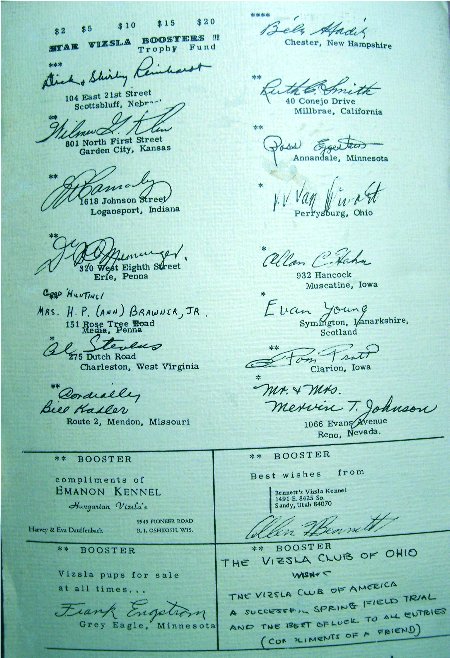 $2 $5 $10 $15 $20
STAR VIZSLA BOOSTERS !!!
Trophy Fund
***
Dick & Shirley Reinhardt
104 East 21st Street
Scottsbluff,
**
Wilmer G. Klein
801 North First Street
Garden City, Kansas
**
1618 Johnson Street
Logansport, Indiana
**
320 West Eighth Street
Erie, Penna
GOOD HUNTING!
MRS. H. P. (ANN) BRAWNER, JR.
151 Rose Tree Road
Media, Penna
*
Stevens
275 Dutch Road
Charleston, West Virginia
**
Cordially
Bill Kabler
Route 2, Mendon, Missouri
****
Béla Hadik
Chester, New Hampshire
**
Ruth C. Smith
40 Conejo Drive
Millbrae, California
**
Ross
Annandale, Minnesota
*
Perrysburg, Ohio
*
Allan C. Hahn
932 Hancock
Muscatine, Iowa
*
Evan Young
Symington, Lanarkshire,
Scotland
**
Tom Pratt
Clarion, Iowa
*
Mr. & Mrs.
Mervin T. Johnson
1066 Evans Avenue
Reno, Nevada.
** BOOSTER
compliments of
EMANON KENNEL
Hungarian Vizsla's
PIONEER ROAD
Harvey & Eva
OSHKOSH, WIS.
** BOOSTER
Best wishes from
Bennett's Vizsla Kennel
1491 E. 8625 So.
Sandy, Utah 84070
Allen Bennett
** BOOSTER
Vizsla pups for sale
at all times...
Frank Engstrom
Grey Eagle, Minnesota
** BOOSTER
THE VIZSLA CLUB OF OHIO
WISHES
THE VIZSLA CLUB OF AMERICA
A SUCCESSFUL SPRING FIELD TRIAL
AND THE BEST OF LUCK TO ALL ENTRIES
(COMPLIMENTS OF A FRIEND)